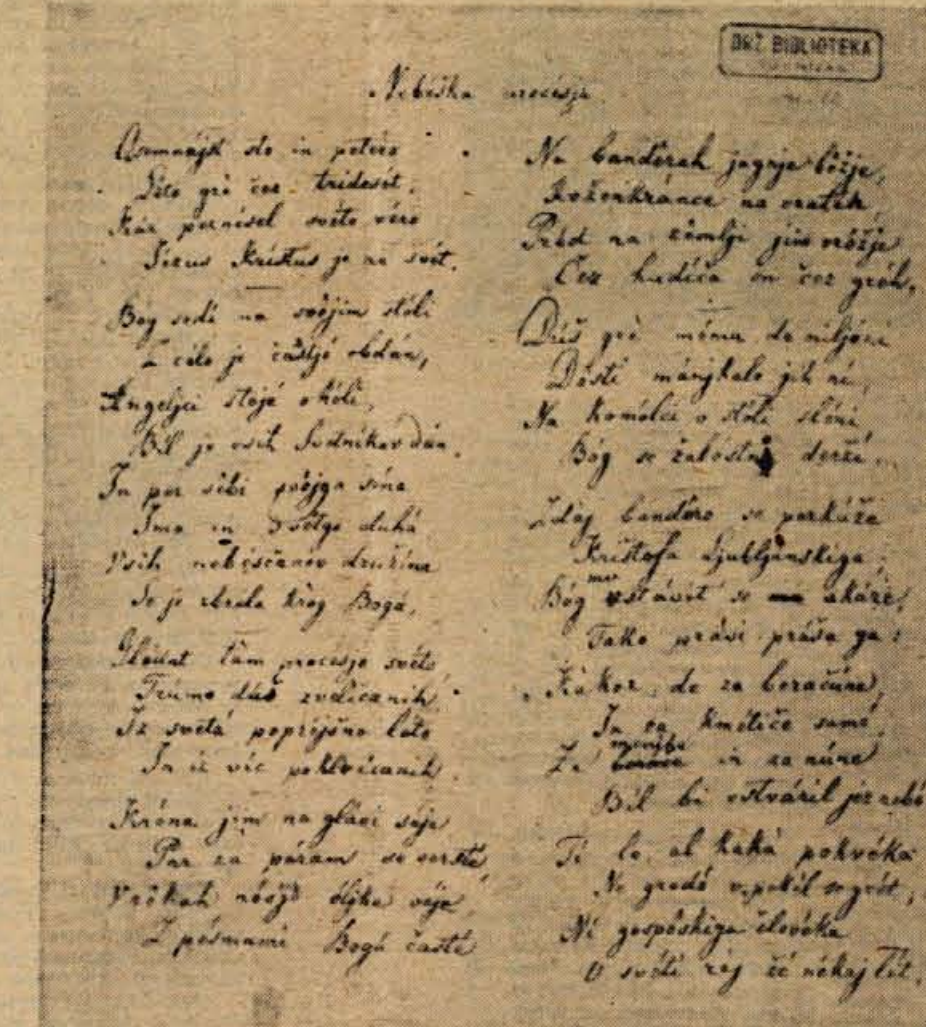 DRŽ. BIBLIOTEKA
Nebéška procésja
Osemnájst sto in petéro
Léto gré čez trídeset,
Kár pernésel svéto véro
Jezus Kristus je na svét.
Bóg sedí na svójim stóli
Z célo je častjó obdán,
Angeljci stojé okóli,
Bil je vsih Svetnikov dán.
In per sébi svójga sína
Ima in Svétga duhá
Vsih nebéščanov družína
Se je zbrala króg Bogá,
Gledat tam procesjo svéto
Trúmo dúš zveličanih,
Iz svetá poprijšno léto
In iz víc poklicanih.
Króna jim na glávi sije
Par za páram se versté,
V rókah nósjo óljke véje
Z pésmami Bogá časté
Na bandérah jagnje bóžje,
Roženkránce na vratéh,
Préd na zémlji jim oróžje
Čez hudíča in čez gréh.
Dúš gré mému do miljóni
Dósti mánjkalo jih ni,
Na komólci o stóli slóni
Bóg se žalostno derží.
Zdáj bandéro se perkáže
Krištofa Ljubljanskiga;
Bóg mu vstávit se ukáže,
Tako právi práša ga:
Kákor, de za beračúne,
In za kmétiče samó,
Za meníhe in za núne
Bil bi vstváril jez nebó
Ti le, al kaká pokvéka
Ne gredó v pekèl sogrét,
Ni gospóskiga človéka
V svéti ráj že nékaj lét.